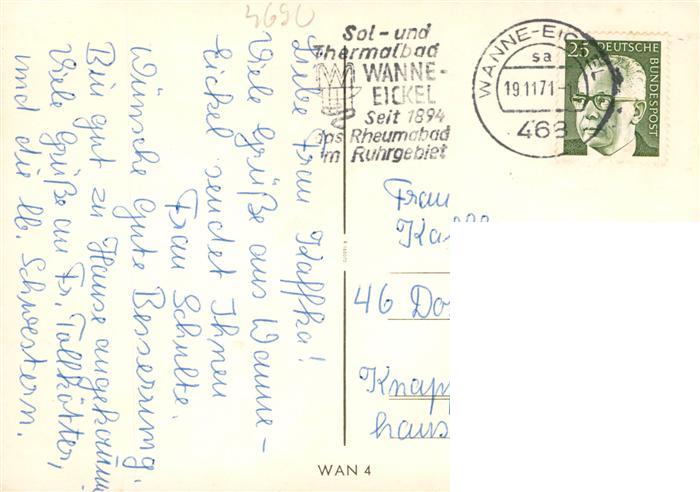 4690
Sol- und
Thermalbad
WANNE-
EICKEL
Seit 1894
das Rheumabad
im Ruhrgebiet
WANNE-EICKEL
sa
19.11.71-
468
25 DEUTSCHE
BUNDESPOST
Liebe Frau Kaffka!
Viele Grüße aus Wanne-
Eickel sendet Ihnen
Frau Schulte.
Wünsche gute Besserung.
Bin gut zu Hause angekommen
Viele Grüße an Fr. Tallkötter,
und die lb. Schwestern.
Frau
Ka
46 Do
Knap
haus
WAN 4